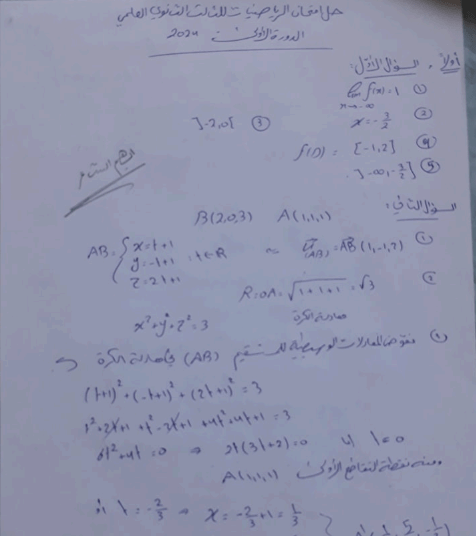 حل امتحان الرياضيات للثالث الثانوي العلمي
الدورة الأولى 2024
أولاً: السؤال الأول:
① lim f(x) = 1
x→-∞
② x = -3/2
③ ]-2,0[
④ f(D) = [-1,2]
⑤ ]-∞,-3/2]
السؤال الثاني:
B(2,0,3) A(1,1,1)
① u(AB) = AB(1,-1,2)
AB = { x=t+1
y=-t+1 : t∈R
z=2t+1
② R=OA=√1+1+1 = √3
معادلة الكرة
x²+y²+z²=3
نعوض المعادلات الوسيطية للمستقيم (AB) في معادلة الكرة
(t+1)²+(-t+1)²+(2t+1)²=3
t²+2t+1+t²-2t+1+4t²+4t+1=3
6t²+4t=0 ⇒ 2t(3t+2)=0 t=0
ومنه نقطة التقاطع الأولى A(1,1,1)
أو t=-2/3 ⇒ x=-2/3+1=1/3